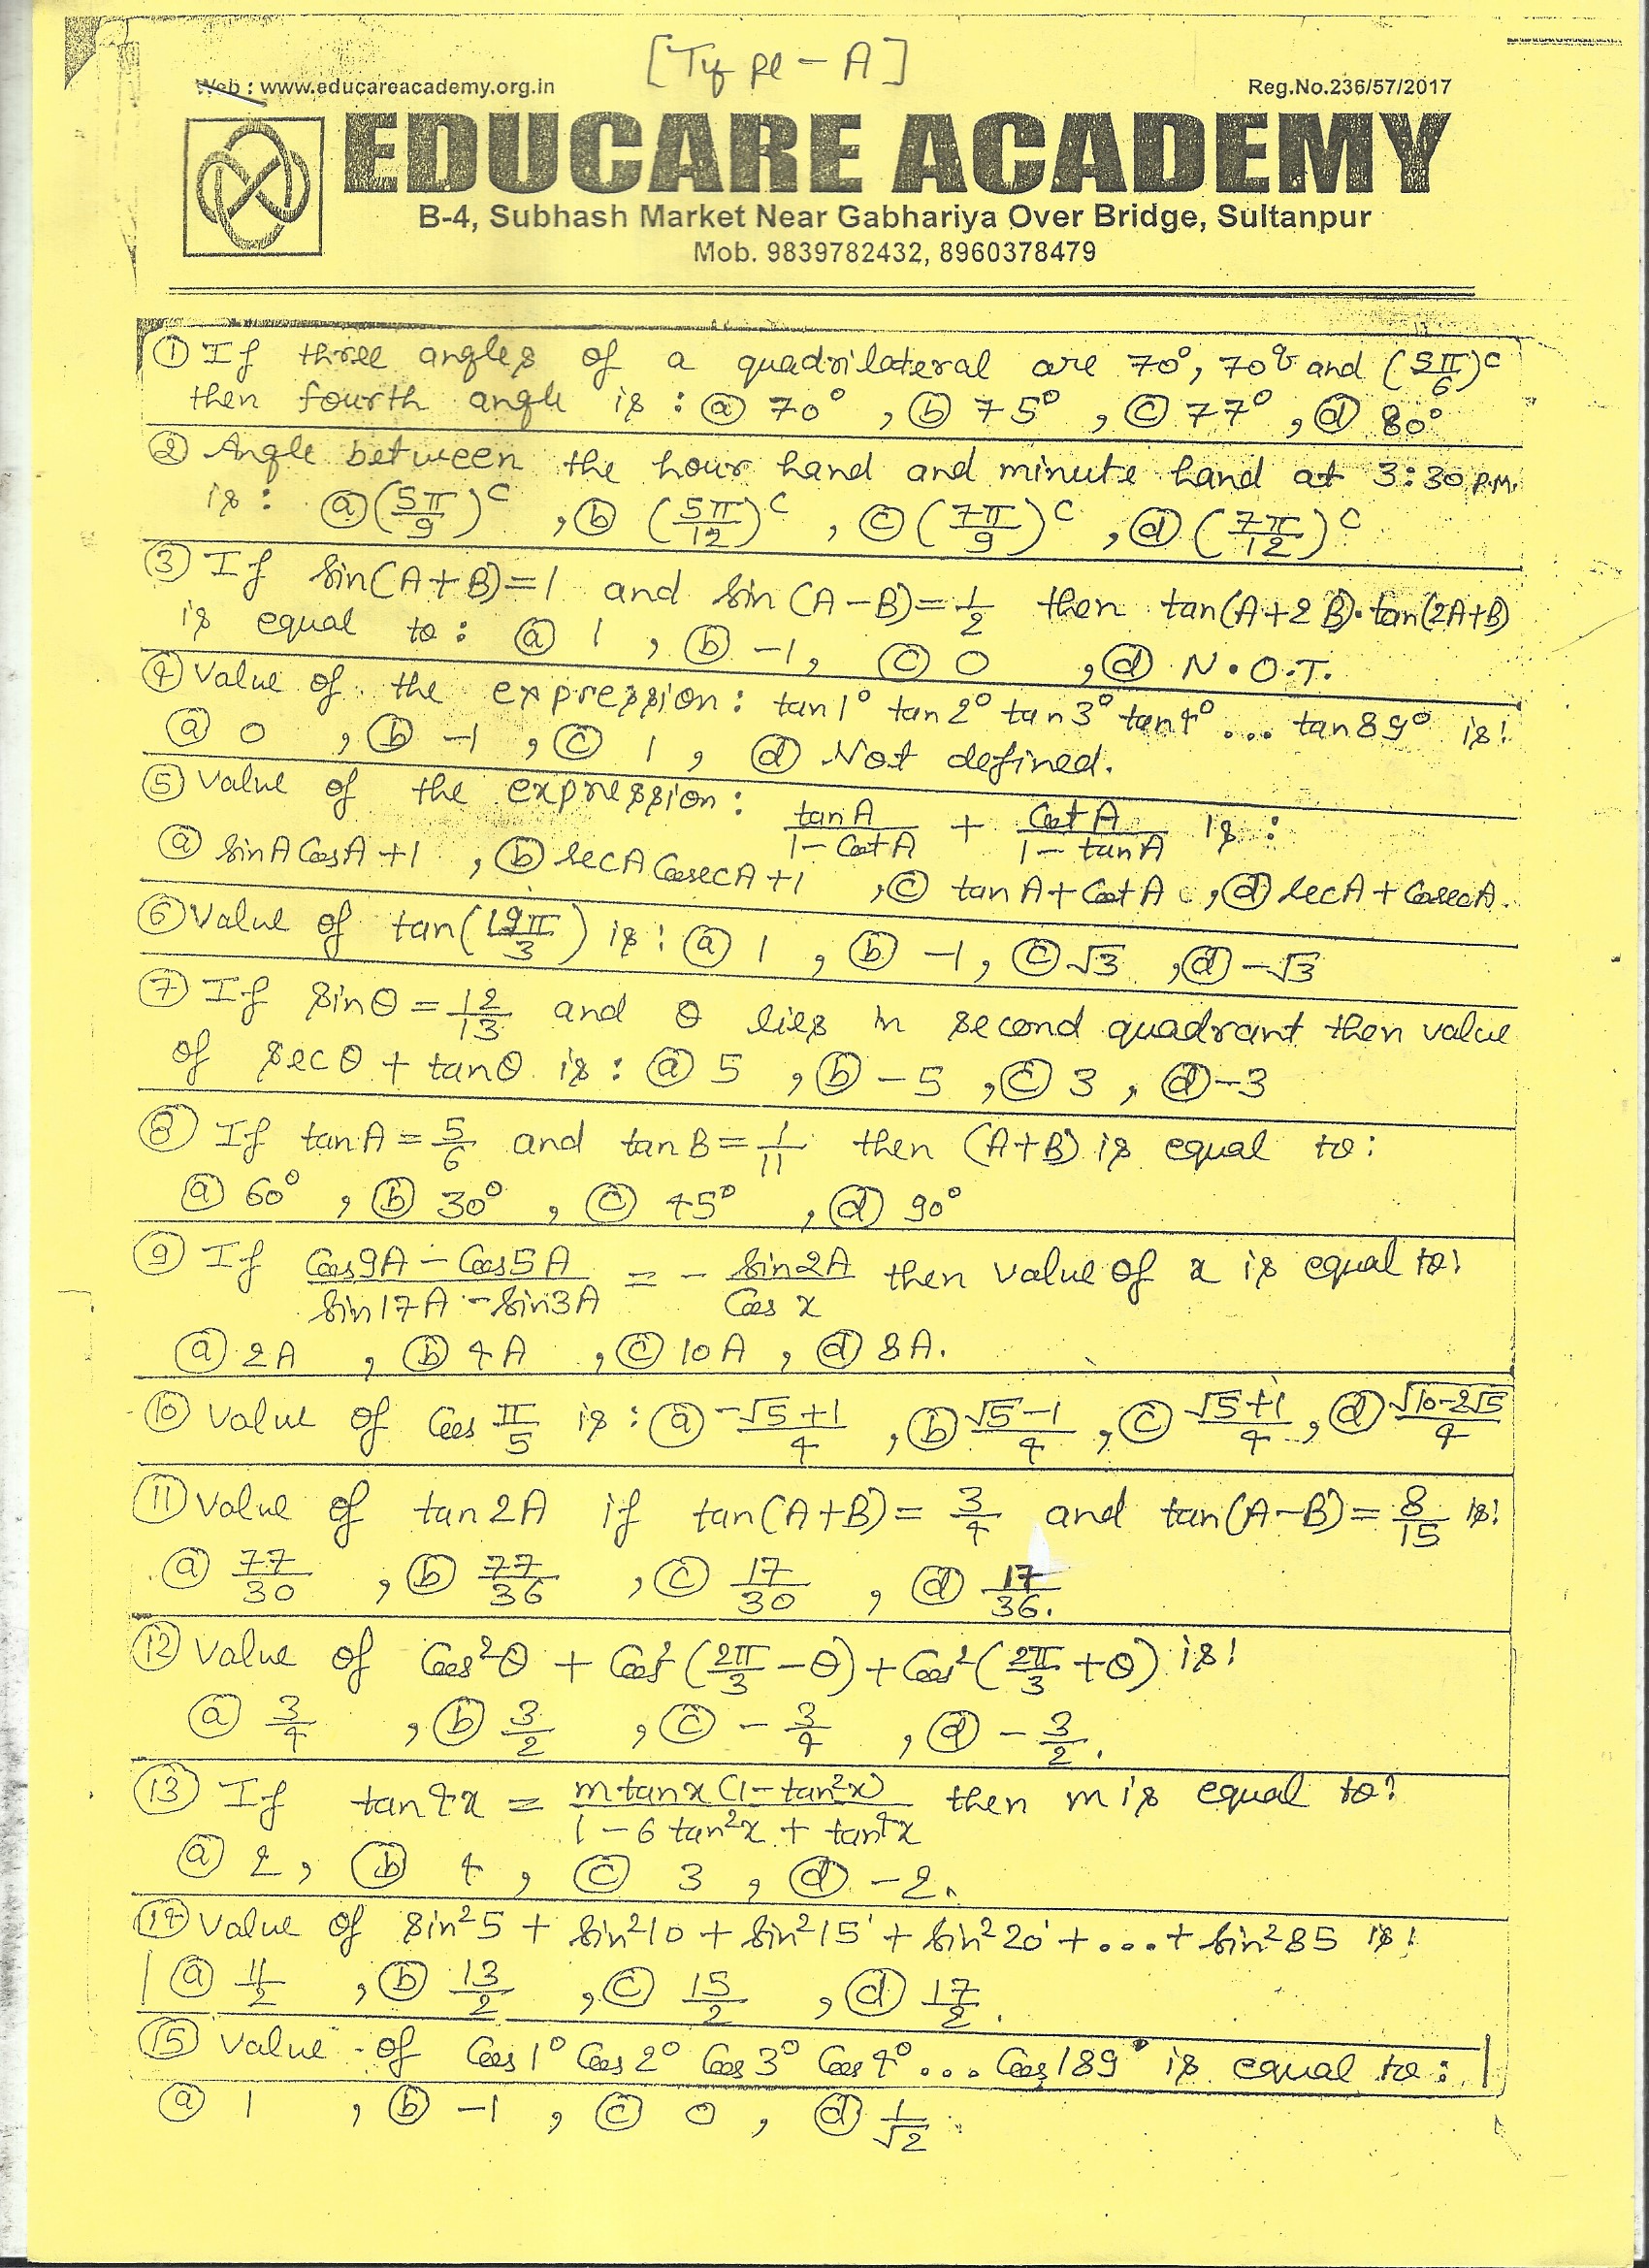 [Type-A]
Web : www.educareacademy.org.in Reg.No.236/57/2017
EDUCARE ACADEMY
B-4, Subhash Market Near Gabhariya Over Bridge, Sultanpur
Mob. 9839782432, 8960378479
① If three angles of a quadrilateral are 70°, 70ᵍ and (5π/6)ᶜ
then fourth angle is : ⓐ 70° , ⓑ 75° , ⓒ 77° , ⓓ 80°
② Angle between the hour hand and minute hand at 3:30 P.M.
is : ⓐ (5π/9)ᶜ , ⓑ (5π/12)ᶜ , ⓒ (7π/9)ᶜ , ⓓ (7π/12)ᶜ
③ If sin(A+B)=1 and sin(A-B)=1/2 then tan(A+2B)·tan(2A+B)
is equal to : ⓐ 1 , ⓑ -1 , ⓒ 0 , ⓓ N.O.T.
④ Value of the expression : tan1° tan2° tan3° tan4° ... tan89° is :
ⓐ 0 , ⓑ -1 , ⓒ 1 , ⓓ Not defined.
⑤ Value of the expression : tanA/(1-CotA) + CotA/(1-tanA) is :
ⓐ sinA CosA +1 , ⓑ secA CosecA +1 , ⓒ tanA + CotA , ⓓ secA + CosecA.
⑥ Value of tan(19π/3) is : ⓐ 1 , ⓑ -1 , ⓒ √3 , ⓓ -√3
⑦ If sinθ = 12/13 and θ lies in second quadrant then value
of secθ + tanθ is : ⓐ 5 , ⓑ -5 , ⓒ 3 , ⓓ -3
⑧ If tanA = 5/6 and tanB = 1/11 then (A+B) is equal to :
ⓐ 60° , ⓑ 30° , ⓒ 45° , ⓓ 90°
⑨ If (Cos9A - Cos5A)/(sin17A - sin3A) = - sin2A/Cos x then value of x is equal to :
ⓐ 2A , ⓑ 4A , ⓒ 10A , ⓓ 8A.
⑩ Value of Cos π/5 is : ⓐ (-√5+1)/4 , ⓑ (√5-1)/4 , ⓒ (√5+1)/4 , ⓓ √(10-2√5)/4
⑪ Value of tan2A if tan(A+B) = 3/4 and tan(A-B) = 8/15 is :
ⓐ 77/30 , ⓑ 77/36 , ⓒ 17/30 , ⓓ 17/36.
⑫ Value of Cos²θ + Cos²(2π/3 - θ) + Cos²(2π/3 + θ) is :
ⓐ 3/4 , ⓑ 3/2 , ⓒ - 3/4 , ⓓ - 3/2.
⑬ If tan4x = m tanx (1-tan²x)/(1-6 tan²x + tan⁴x) then m is equal to :
ⓐ 2 , ⓑ 4 , ⓒ 3 , ⓓ -2.
⑭ Value of sin²5 + sin²10 + sin²15 + sin²20 + ... + sin²85 is :
ⓐ 11/2 , ⓑ 13/2 , ⓒ 15/2 , ⓓ 17/2.
⑮ Value of Cos1° Cos2° Cos3° Cos4° ... Cos189° is equal to :
ⓐ 1 , ⓑ -1 , ⓒ 0 , ⓓ 1/√2